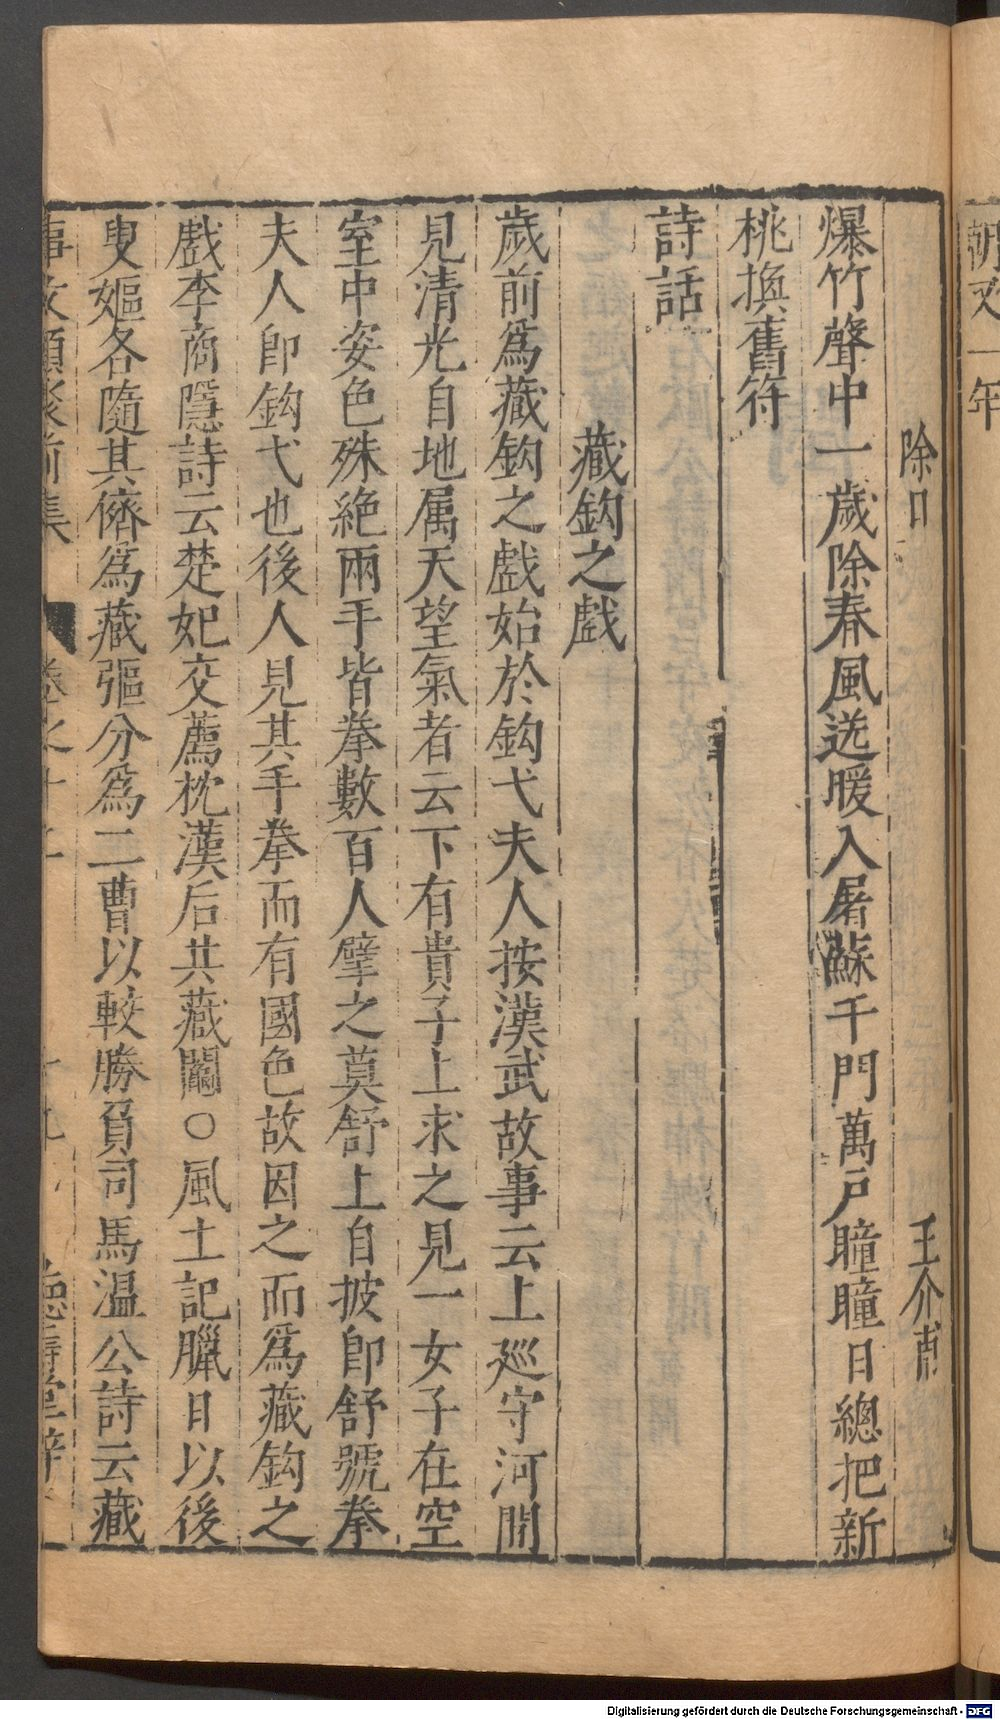 朝又一年
除日 王介甫
爆竹聲中一歲除春風送暖入屠蘇千門萬戶瞳瞳日總把新
桃換舊符
詩話
藏鈎之戲
歲前爲藏鈎之戲始於鈎弋夫人按漢武故事云上廵守河間
見清光自地属天望氣者云下有貴子上求之見一女子在空
室中姿色殊絶兩手皆拳數百人擘之莫舒上自披即舒號拳
夫人即鈎弋也後人見其手拳而有國色故因之而爲藏鈎之
戲李商隱詩云楚妃交薦枕漢后共藏鬮○風土記臘日以後
叟嫗各隨其儕爲藏彄分爲二曹以較勝負司馬温公詩云藏
事文類聚前集 卷之十二 十九 德壽堂梓
Digitalisierung gefördert durch die Deutsche Forschungsgemeinschaft - DFG